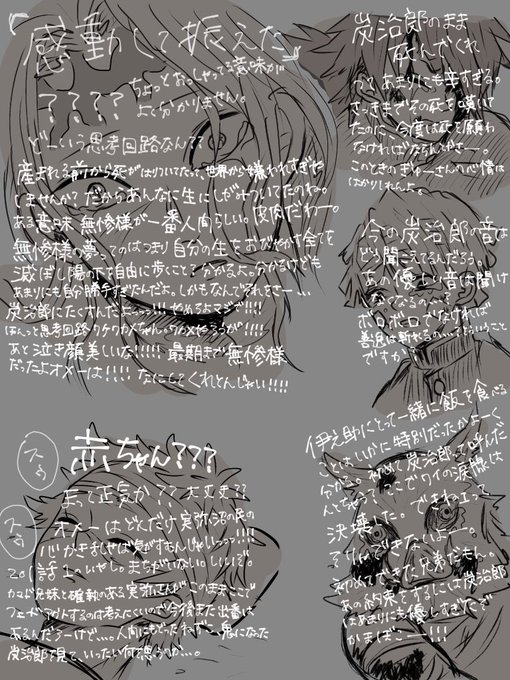 「感動して振えた」
ちょっとおっしゃってる意味が
????よく分かりません。
どーいう思考回路なん??
産まれる前から死がはりついてたって世界から嫌われすぎや
しませんか?だからあんなに生にしがみついてたのね。
ある意味 無惨様が一番人間らしい。皮肉だわー。
無惨様の夢ってのはつまり自分の生をおびやかす全てを
滅ぼし陽の下を自由に歩くこと?分かるよ。分かるけども
あまりにも自分勝手すぎんだよ。しかもなんで
炭治郎にたくすんだよっっっ!!!やめろよマジで!!!!
ほんっと思考回路ワケワカメちゃん。
あと泣き顔美しいな!!!! 最期まで無惨様
だったよオメーは!!!!なにしてくれとんじゃい!!!!
炭治郎のまま
死んでくれ
って あまりにも辛すぎる。
さっきまでその死を嘆いて
たのに、今度は死を願わ
なければならんてさー。
このときのぎゆーさんの心情は
はかりしれんよ。
今の炭治郎の音は
どう聞こえてるんだろう。
あの優しい音は聞け
なくなるの…?
ボロボロでなければ
善逸は斬れるの…ってたいうこと
ですか
赤ちゃん???
まって正気か??大丈夫??
オメーはどんだけ実弥沼の民の
心かきまわせば気がすむんじゃいっっっ!!!
この話1のいやし。まちがいない。しいしいて。
カマド兄妹と確執のある実弥さんがこのままここで
フェードアウトするのは考えにくいので今後また出番は
あるんだろーけど…。人間にもどったねずこ、鬼になった
炭治郎を見て、いったい何を思うのか…。
伊之助にとって一緒に飯を食べる
ことはいかに特別だったかよーく
分かる。初めて炭治郎って呼んだ
んじゃない?ここでワイの涙腺は
決壊った。できねェって
初めてできた兄弟だもん。
あの約束をするには炭治郎
はあまりにも優しすぎたで
かまぼこー!!!